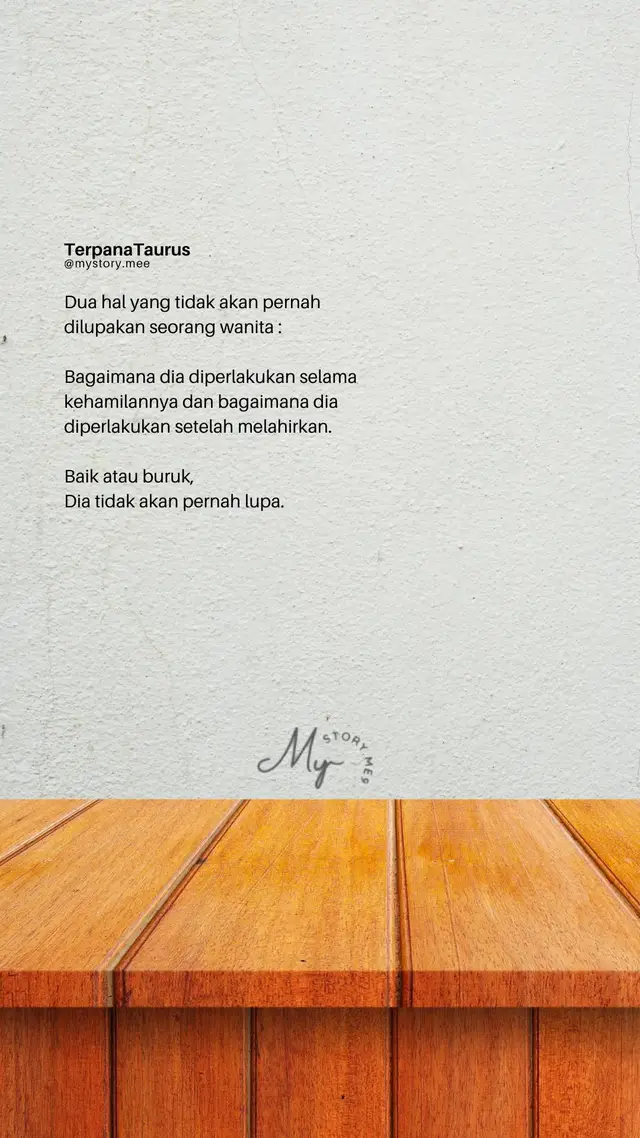 TerpanaTaurus
@mystory.mee
Dua hal yang tidak akan pernah
dilupakan seorang wanita :
Bagaimana dia diperlakukan selama
kehamilannya dan bagaimana dia
diperlakukan setelah melahirkan.
Baik atau buruk,
Dia tidak akan pernah lupa.
My
STORY MEE